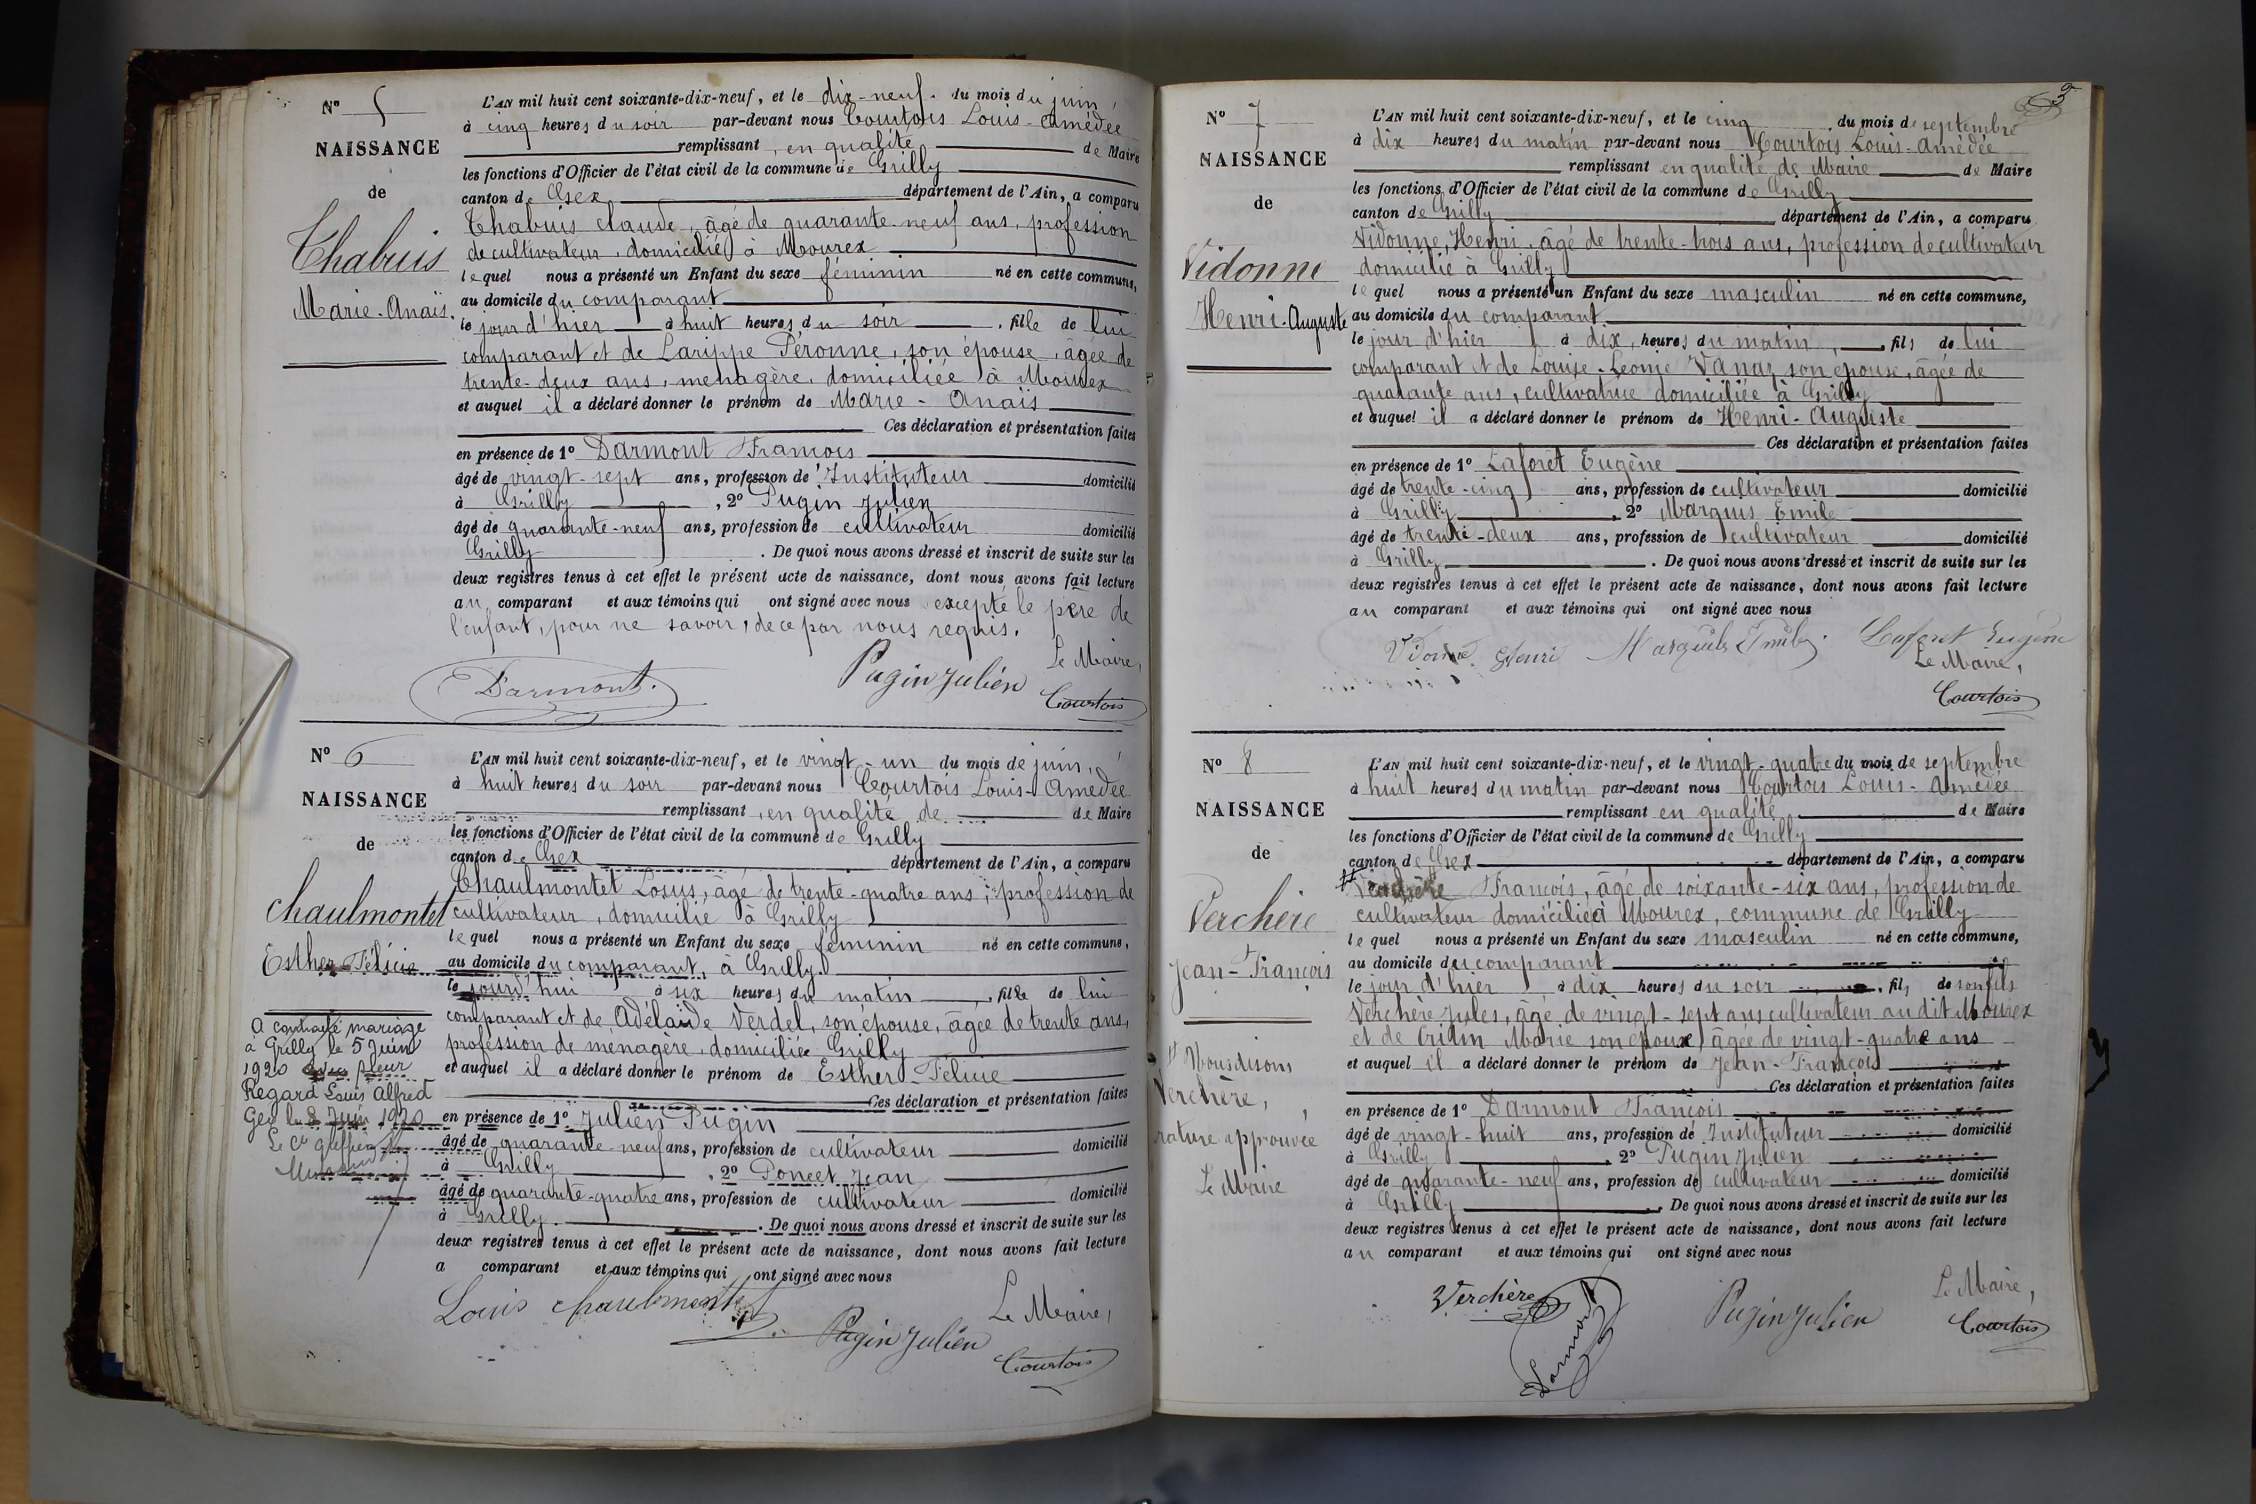 N° 5
NAISSANCE
de
Chabuis
Marie-Anaïs.
L'AN mil huit cent soixante-dix-neuf, et le dix-neuf. du mois du juin,
à cinq heures du soir par-devant nous Courtois Louis-Amédée
remplissant, en qualité de Maire
les fonctions d'Officier de l'état civil de la commune de Grilly
canton de Gex département de l'Ain, a comparu
Chabuis claude, âgé de quarante-neuf ans, profession
de cultivateur, domicilié à Mourex
lequel nous a présenté un Enfant du sexe féminin né en cette commune,
au domicile du comparant
le jour d'hier à huit heures du soir, fille de lui
comparant et de Larippe Péronne, son épouse, âgée de
trente-deux ans, menagère, domiciliée à Mourex
et auquel il a déclaré donner le prénom de Marie-Anaïs
Ces déclaration et présentation faites
en présence de 1° Darmont François
âgé de vingt-sept ans, profession de Instituteur domicilié
à Grilly, 2° Pugin Julien
âgé de quarante-neuf ans, profession de cultivateur domicilié
Grilly. De quoi nous avons dressé et inscrit de suite sur les
deux registres tenus à cet effet le présent acte de naissance, dont nous avons fait lecture
au comparant et aux témoins qui ont signé avec nous excepté le père de
l'enfant, pour ne savoir, de ce par nous requis.
Le Maire,
Darmont. Pugin Julien Courtois
N° 6
NAISSANCE
de
Chaulmontet
Esther Félicie
a contracté mariage
à Grilly le 5 Juin
1920 avec fleur
Regard Louis Alfred
Gex le 8 Juin 1920
Le Cs greffier
L'AN mil huit cent soixante-dix-neuf, et le vingt-un du mois de juin,
à huit heures du soir par-devant nous Courtois Louis-Amédée
remplissant, en qualité de de Maire
les fonctions d'Officier de l'état civil de la commune de Grilly
canton de Gex département de l'Ain, a comparu
Chaulmontet Louis, âgé de trente-quatre ans, profession de
cultivateur, domicilié à Grilly
lequel nous a présenté un Enfant du sexe féminin né en cette commune,
au domicile du comparant, à Grilly.
le jourd'hui à six heures du matin, fille de lui
comparant et de Adélaïde Verdel, son épouse, âgée de trente ans,
profession de ménagère, domiciliée Grilly
et auquel il a déclaré donner le prénom de Esther-Félicie
Ces déclaration et présentation faites
en présence de 1° Julien Pugin
âgé de quarante-neuf ans, profession de cultivateur domicilié
à Grilly, 2° Poncet Jean
âgé de quarante-quatre ans, profession de cultivateur domicilié
à Grilly. De quoi nous avons dressé et inscrit de suite sur les
deux registres tenus à cet effet le présent acte de naissance, dont nous avons fait lecture
a comparant et aux témoins qui ont signé avec nous
Le Maire,
Louis chaulmontet Pugin Julien Courtois
N° 7
NAISSANCE
de
Vidonne
Henri-Auguste
L'AN mil huit cent soixante-dix-neuf, et le cinq du mois de septembre
à dix heures du matin par-devant nous Courtois Louis-Amédée
remplissant en qualité de Maire de Maire
les fonctions d'Officier de l'état civil de la commune de Grilly
canton de Grilly département de l'Ain, a comparu
Vidonne, Henri, âgé de trente-trois ans, profession de cultivateur
domicilié à Grilly
lequel nous a présenté un Enfant du sexe masculin né en cette commune,
au domicile du comparant.
le jour d'hier à dix heures du matin, fils de lui
comparant et de Louise-Léonie Vanaz son épouse, âgée de
quarante ans, cultivatrice domiciliée à Grilly
et auquel il a déclaré donner le prénom de Henri-Auguste
Ces déclaration et présentation faites
en présence de 1° Laforêt Eugène
âgé de trente-cinq ans, profession de cultivateur domicilié
à Grilly, 2° Marquis Emile
âgé de trente-deux ans, profession de cultivateur domicilié
à Grilly. De quoi nous avons dressé et inscrit de suite sur les
deux registres tenus à cet effet le présent acte de naissance, dont nous avons fait lecture
au comparant et aux témoins qui ont signé avec nous
Vidonne Henri Marquis Emile. Laforet Eugène
Le Maire,
Courtois
N° 8
NAISSANCE
de
Verchère
Jean-François
Nous disons
Verchère,
rature approuvée
Le Maire
L'AN mil huit cent soixante-dix-neuf, et le vingt-quatre du mois de septembre
à huit heures du matin par-devant nous Courtois Louis-Amédée
remplissant en qualité de Maire
les fonctions d'Officier de l'état civil de la commune de Grilly
canton de Gex département de l'Ain, a comparu
Verchère François, âgé de soixante-six ans, profession de
cultivateur domicilié à Mourex, commune de Grilly
lequel nous a présenté un Enfant du sexe masculin né en cette commune,
au domicile du comparant
le jour d'hier à dix heures du soir, fils de son fils
Verchère Jules, âgé de vingt-sept ans cultivateur au dit Mourex
et de Cridin Marie son épouse âgée de vingt-quatre ans
et auquel il a déclaré donner le prénom de Jean-François
Ces déclaration et présentation faites
en présence de 1° Darmont François
âgé de vingt-huit ans, profession de Instituteur domicilié
à Grilly, 2° Pugin Julien
âgé de quarante-neuf ans, profession de cultivateur domicilié
à Grilly. De quoi nous avons dressé et inscrit de suite sur les
deux registres tenus à cet effet le présent acte de naissance, dont nous avons fait lecture
au comparant et aux témoins qui ont signé avec nous
Le Maire,
Verchère Darmont Pugin Julien Courtois